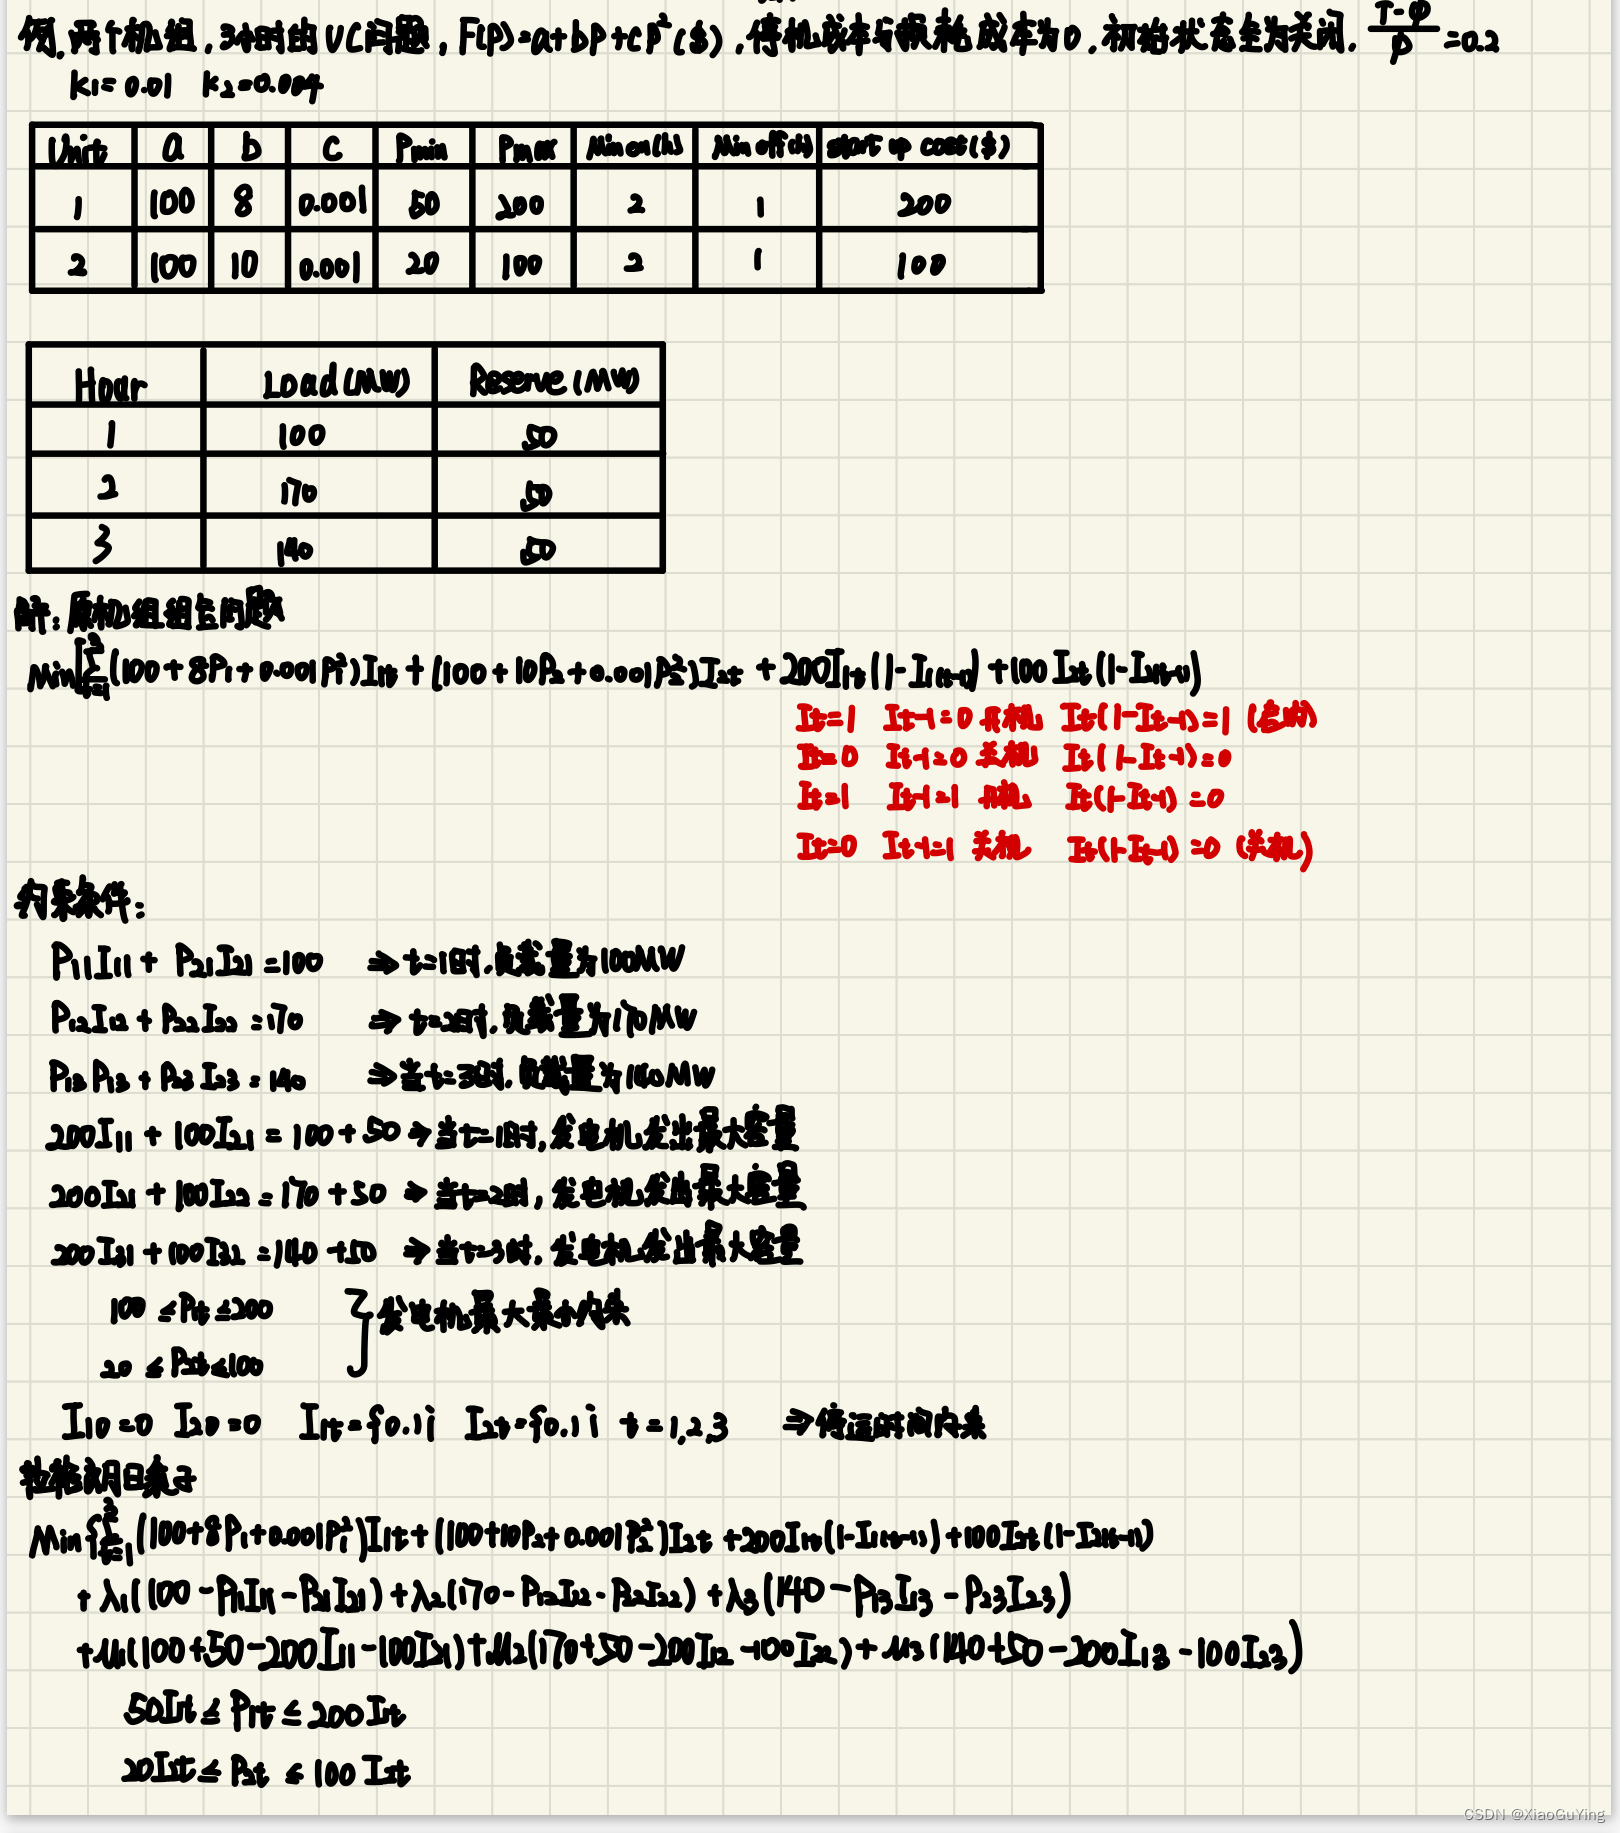 例.两个机组,3小时的UC问题,F(P)=a+bP+cP²($),停机成本与损耗成本为0,初始状态全为关闭. (T-φ)/φ=0.2
k₁=0.01 k₂=0.004
Unit a b c Pmin Pmax Min on(h) Min off(h) start up cost($)
1 100 8 0.001 50 200 2 1 200
2 100 10 0.001 20 100 2 1 100
Hour Load(MW) Reserve(MW)
1 100 50
2 170 50
3 140 50
解:原机组组合问题
Min[∑³ₜ₌₁(100+8P₁+0.001P₁²)I₁t+(100+10P₂+0.001P₂²)I₂t+200I₁t(1-I₁(t-1))+100I₂t(1-I₂(t-1))
It=1 It-1=0 开机 It(1-It-1)=1 (启动)
It=0 It-1=0 关机 It(1-It-1)=0
It=1 It-1=1 开机 It(1-It-1)=0
It=0 It-1=1 关机 It(1-It-1)=0 (关机)
约束条件:
P₁₁I₁₁+P₂₁I₂₁=100 ⇒t=1时,负载量为100MW
P₁₂I₁₂+P₂₂I₂₂=170 ⇒t=2时,负载量为170MW
P₁₃P₁₃+P₂₃I₂₃=140 ⇒当t=3时,负载量为140MW
200I₁₁+100I₂₁=100+50⇒当t=1时,发电机发出最大容量
200I₂₁+100I₂₂=170+50⇒当t=2时,发电机发出最大容量
200I₃₁+100I₃₂=140+50⇒当t=3时,发电机发出最大容量
100≤P₁t≤200 } 发电机最大最小约束
20≤P₂t≤100
I₁₀=0 I₂₀=0 I₁t={0.1} I₂t={0.1} t=1,2,3 ⇒停运时间约束
拉格朗日乘子
Min{∑³ₜ₌₁(100+8P₁+0.001P₁²)I₁t+(100+10P₂+0.001P₂²)I₂t+200I₁t(1-I₁(t-1))+100I₂t(1-I₂(t-1))
+λ₁(100-P₁₁I₁₁-P₂₁I₂₁)+λ₂(170-P₁₂I₁₂-P₂₂I₂₂)+λ₃(140-P₁₃I₁₃-P₂₃I₂₃)
+μ₁(100+50-200I₁₁-100I₂₁)+μ₂(170+50-200I₁₂-100I₂₂)+μ₃(140+50-200I₁₃-100I₂₃)
50I₁t≤P₁t≤200I₁t
20I₂t≤P₂t≤100I₂t
CSDN @XiaoGuYing